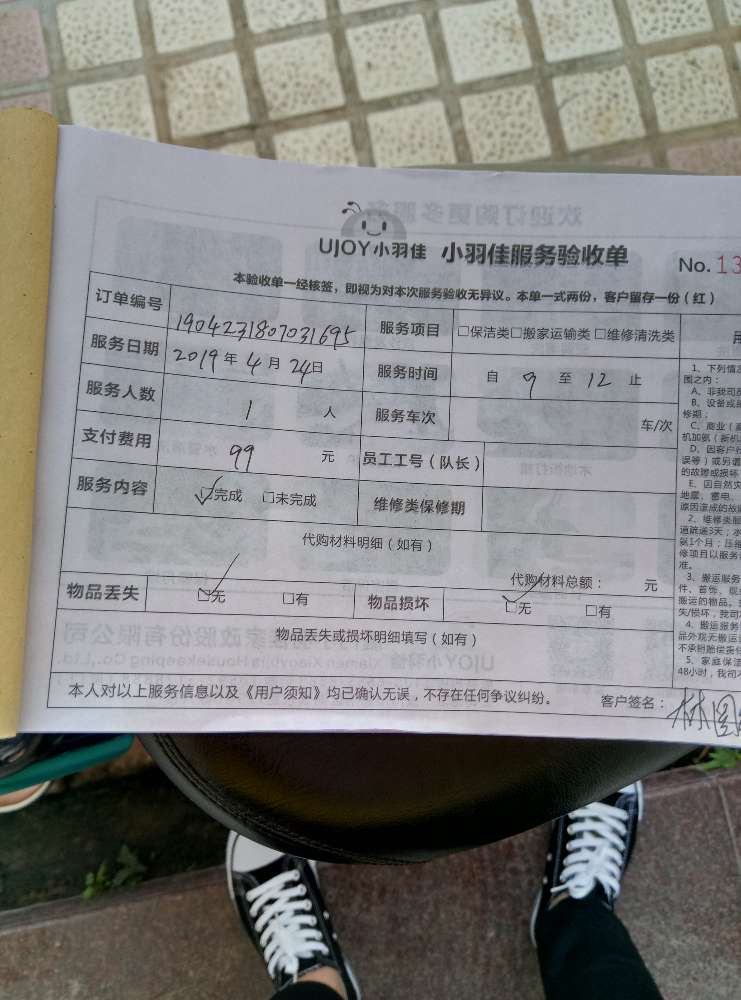 UJOY小羽佳 小羽佳服务验收单
No. 13
本验收单一经核签，即视为对本次服务验收无异议。本单一式两份，客户留存一份（红）
订单编号 1904231807031695 服务项目 □保洁类□搬家运输类□维修清洗类
服务日期 2019年4月24日 服务时间 自 9 至 12 止
服务人数 1 人 服务车次 车/次
支付费用 99 元 员工工号（队长）
服务内容 ☑完成 □未完成 维修类保修期
代购材料明细（如有）
代购材料总额： 元
物品丢失 ☑无 □有 物品损坏 ☑无 □有
物品丢失或损坏明细填写（如有）
本人对以上服务信息以及《用户须知》均已确认无误，不存在任何争议纠纷。 客户签名：林
用
1、下列情
围之内：
A、非我司
B、设备或
修期；
C、商业（
机加氨（新机
D、因客户
误等）或另请
的故障或损坏
E、因自然灾
地震、雷电、
原因造成的故
2、维修类服
道疏通3天；水
氨1个月；压缩
修项目以服务
准。
3、搬运服务
件、首饰、现
搬运的物品。
失/损坏，我司
4、搬运服务
品外观无搬运
不承担赔偿责任
5、家庭保洁
48小时，我司不